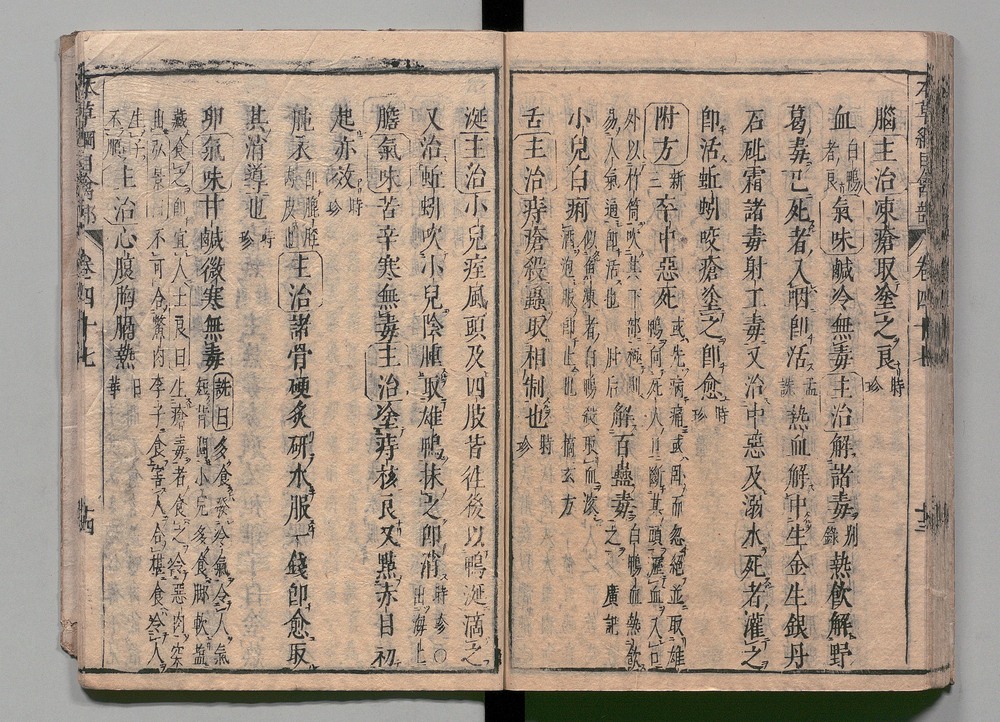 本草綱目禽部 卷四十七 十三
腦主治凍瘡取塗之良時珍
血白鴨者良氣味鹹冷無毒主治解諸毒別錄熱飲解野
葛毒已死者入咽即活孟詵熱血解中生金生銀丹
石砒霜諸毒射工毒又治中惡及溺水死者灌之
即活蚯蚓咬瘡塗之即愈時珍
附方新三卒中惡死或先病痛或臥而忽絕並取雄鴨向死人口斷其頭瀝血入口外以竹筒吹其下部極則易人氣通即活也肘后解百蠱毒白鴨血熱飲之廣記
小兒白痢似魚凍者白鴨殺取血滾酒泡服即止也摘玄方
舌主治痔瘡殺蟲取相制也時珍
涎主治小兒痓風頭及四肢皆往後以鴨涎滴之
又治蚯蚓吹小兒陰腫取雄鴨抹之即消時珍〇出海上
膽氣味苦辛寒無毒主治塗痔核良又點赤目初
起亦效時珍
肫衣即䏶胵皮也主治諸骨硬炙研水服一錢即愈取
其消導也時珍
卵氣味甘鹹微寒無毒詵曰多食發冷氣令人氣短背悶小兒多食脚軟鹽藏食之即宜人士良曰生瘡毒者食之令惡肉突出弘景曰不可合鱉肉李子食害人合椹食令人生子不順主治心腹胸膈熱日華
本草綱目禽部 卷四十七 十四